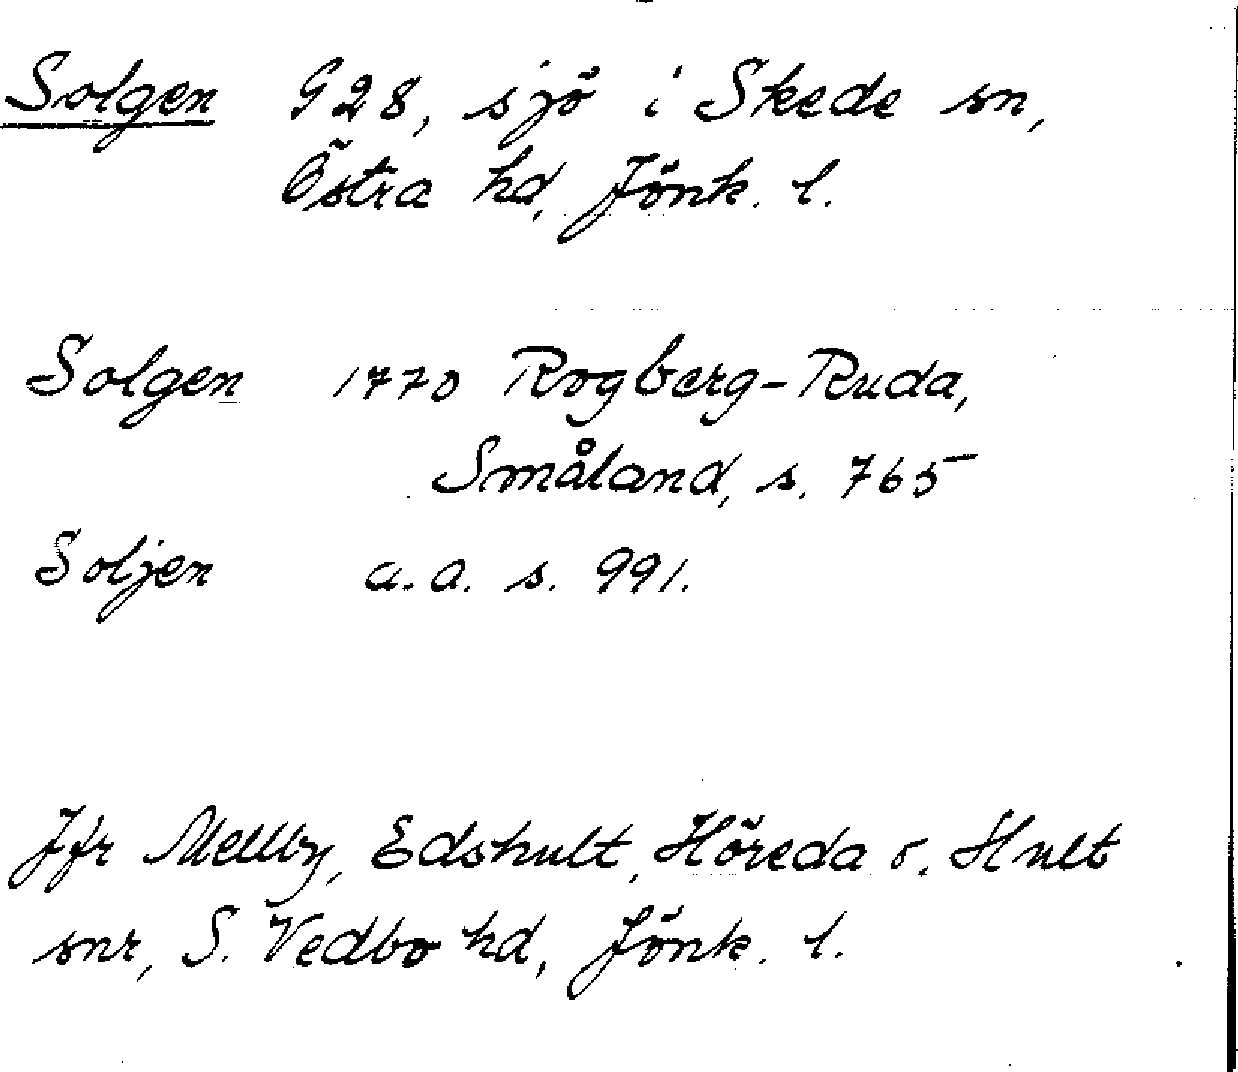 Solgen G28, sjö i Skede sn,
Östra hd, Jönk. l.
Solgen 1770 Rogberg-Ruda,
Småland, s. 765
Soljen a.a. s. 991.
Jfr Mellby, Edshult, Höreda o. Hult
snr, S. Vedbo hd, Jönk. l.